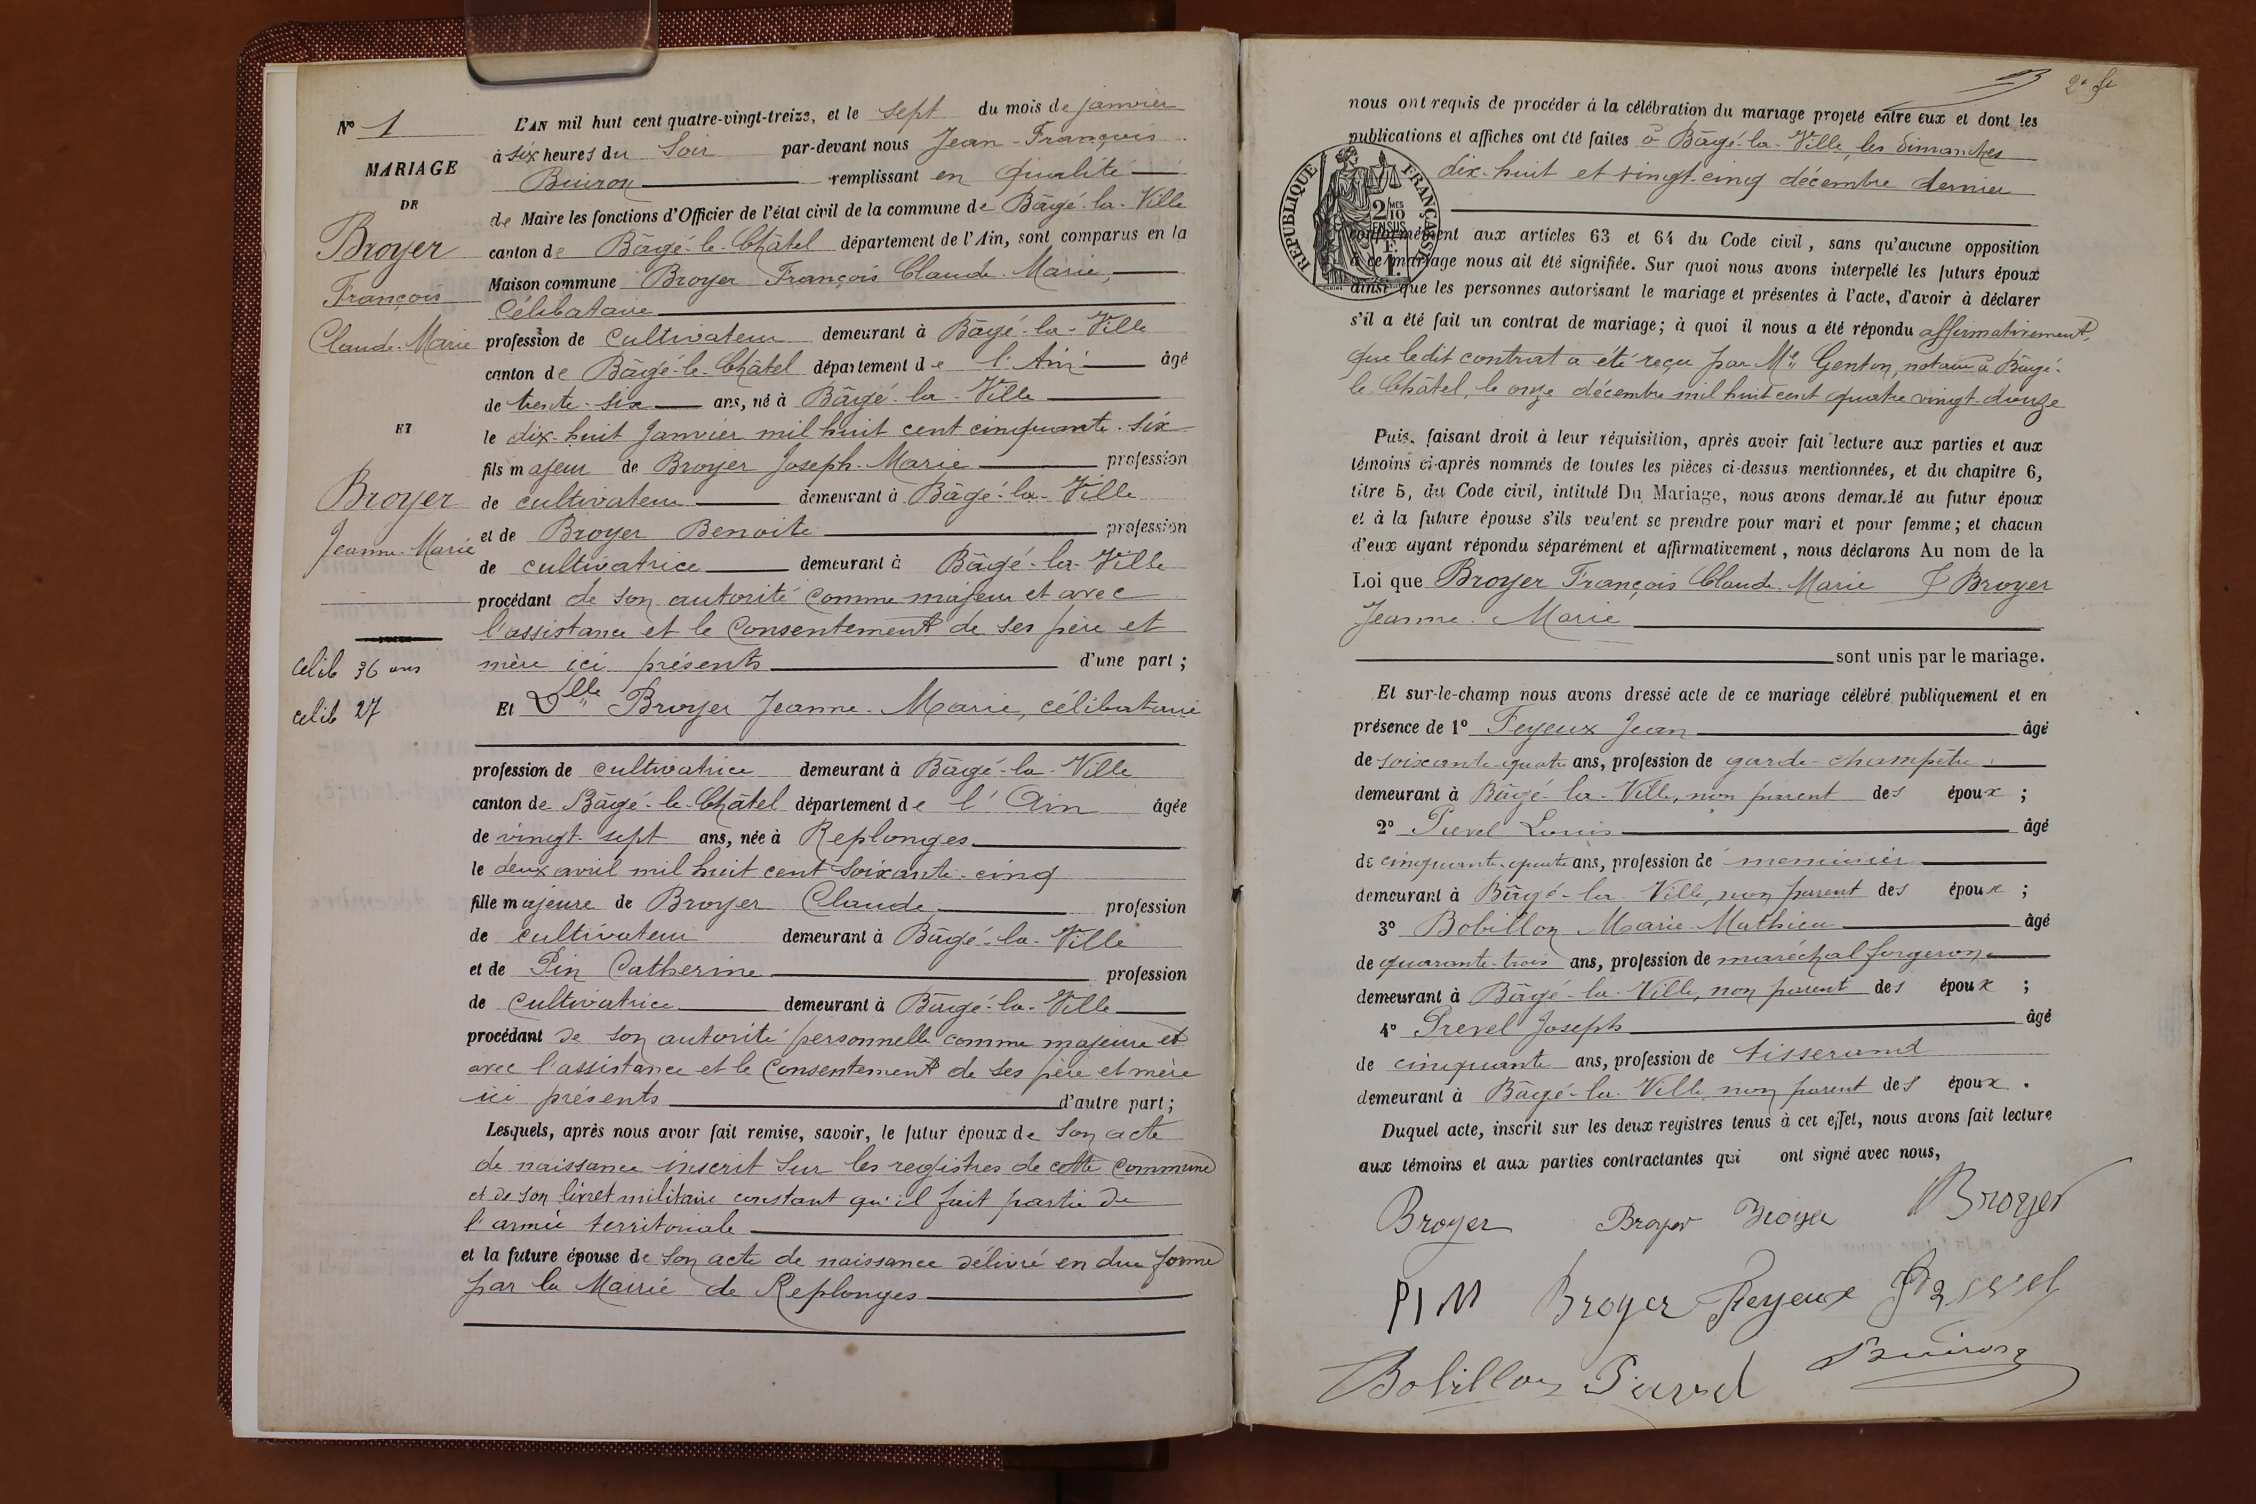 Nº 1
MARIAGE
DE
Broyer
François
Claude-Marie
ET
Broyer
Jeanne-Marie
celib 36 ans
celib 27
L'AN mil huit cent quatre-vingt-treize, et le sept du mois de janvier
à six heures du Soir par-devant nous Jean-François
Buiron remplissant en qualité
de Maire les fonctions d'Officier de l'état civil de la commune de Bâgé-la-Ville
canton de Bâgé-le-Châtel département de l'Ain, sont comparus en la
Maison commune Broyer François Claude-Marie,
Célibataire
profession de cultivateur demeurant à Bâgé-la-Ville
canton de Bâgé-le-Châtel département de l'Ain âgé
de trente-six ans, né à Bâgé-la-Ville
le dix-huit Janvier mil huit cent cinquante-six
fils majeur de Broyer Joseph-Marie profession
de cultivateur demeurant à Bâgé-la-Ville
et de Broyer Benoite profession
de cultivatrice demeurant à Bâgé-la-Ville
procédant de son autorité comme majeur et avec
l'assistance et le Consentement de ses père et
mère ici présents d'une part ;
Et Dlle Broyer Jeanne-Marie, célibataire
profession de cultivatrice demeurant à Bâgé-la-Ville
canton de Bâgé-le-Châtel département de l'Ain âgée
de vingt-sept ans, née à Replonges
le deux avril mil huit cent soixante-cinq
fille majeure de Broyer Claude profession
de cultivateur demeurant à Bâgé-la-Ville
et de Pin Catherine profession
de cultivatrice demeurant à Bâgé-la-Ville
procédant de son autorité personnelle comme majeure et
avec l'assistance et le Consentement de ses père et mère
ici présents d'autre part ;
Lesquels, après nous avoir fait remise, savoir, le futur époux de son acte
de naissance inscrit sur les registres de cette commune
et de son livret militaire constant qu'il fait partie de
l'armée territoriale
et la future épouse de son acte de naissance délivré en due forme
par la Mairie de Replonges
nous ont requis de procéder à la célébration du mariage projeté entre eux et dont les
publications et affiches ont été faites à Bâgé-la-Ville, les dimanches
dix-huit et vingt-cinq décembre dernier
RÉPUBLIQUE FRANÇAISE
2 MES
10
EN SUS
1 F.
conformément aux articles 63 et 64 du Code civil, sans qu'aucune opposition
à ce mariage nous ait été signifiée. Sur quoi nous avons interpellé les futurs époux
ainsi que les personnes autorisant le mariage et présentes à l'acte, d'avoir à déclarer
s'il a été fait un contrat de mariage ; à quoi il nous a été répondu affirmativement,
que ledit contrat a été reçu par Me Genton, notaire à Bâgé-
le-Châtel, le onze décembre mil huit cent quatre vingt-douze
Puis, faisant droit à leur réquisition, après avoir fait lecture aux parties et aux
témoins ci-après nommés de toutes les pièces ci-dessus mentionnées, et du chapitre 6,
titre 5, du Code civil, intitulé Du Mariage, nous avons demandé au futur époux
et à la future épouse s'ils veulent se prendre pour mari et pour femme ; et chacun
d'eux ayant répondu séparément et affirmativement, nous déclarons Au nom de la
Loi que Broyer François Claude-Marie & Broyer
Jeanne-Marie
sont unis par le mariage.
Et sur-le-champ nous avons dressé acte de ce mariage célébré publiquement et en
présence de 1º Feyeux Jean âgé
de soixante-quatre ans, profession de garde-champêtre
demeurant à Bâgé-la-Ville, non parent des époux ;
2º Purel Louis âgé
de cinquante-quatre ans, profession de menuisier
demeurant à Bâgé-la-Ville, non parent des époux ;
3º Bobillon Marie-Mathieu âgé
de quarante-trois ans, profession de maréchal forgeron
demeurant à Bâgé-la-Ville, non parent des époux ;
4º Prevel Joseph âgé
de cinquante ans, profession de tisserand
demeurant à Bâgé-la-Ville, non parent des époux.
Duquel acte, inscrit sur les deux registres tenus à cet effet, nous avons fait lecture
aux témoins et aux parties contractantes qui ont signé avec nous,
Broyer Broyer Broyer Broyer
PIN Broyer Feyeux
Bobillon Buiron